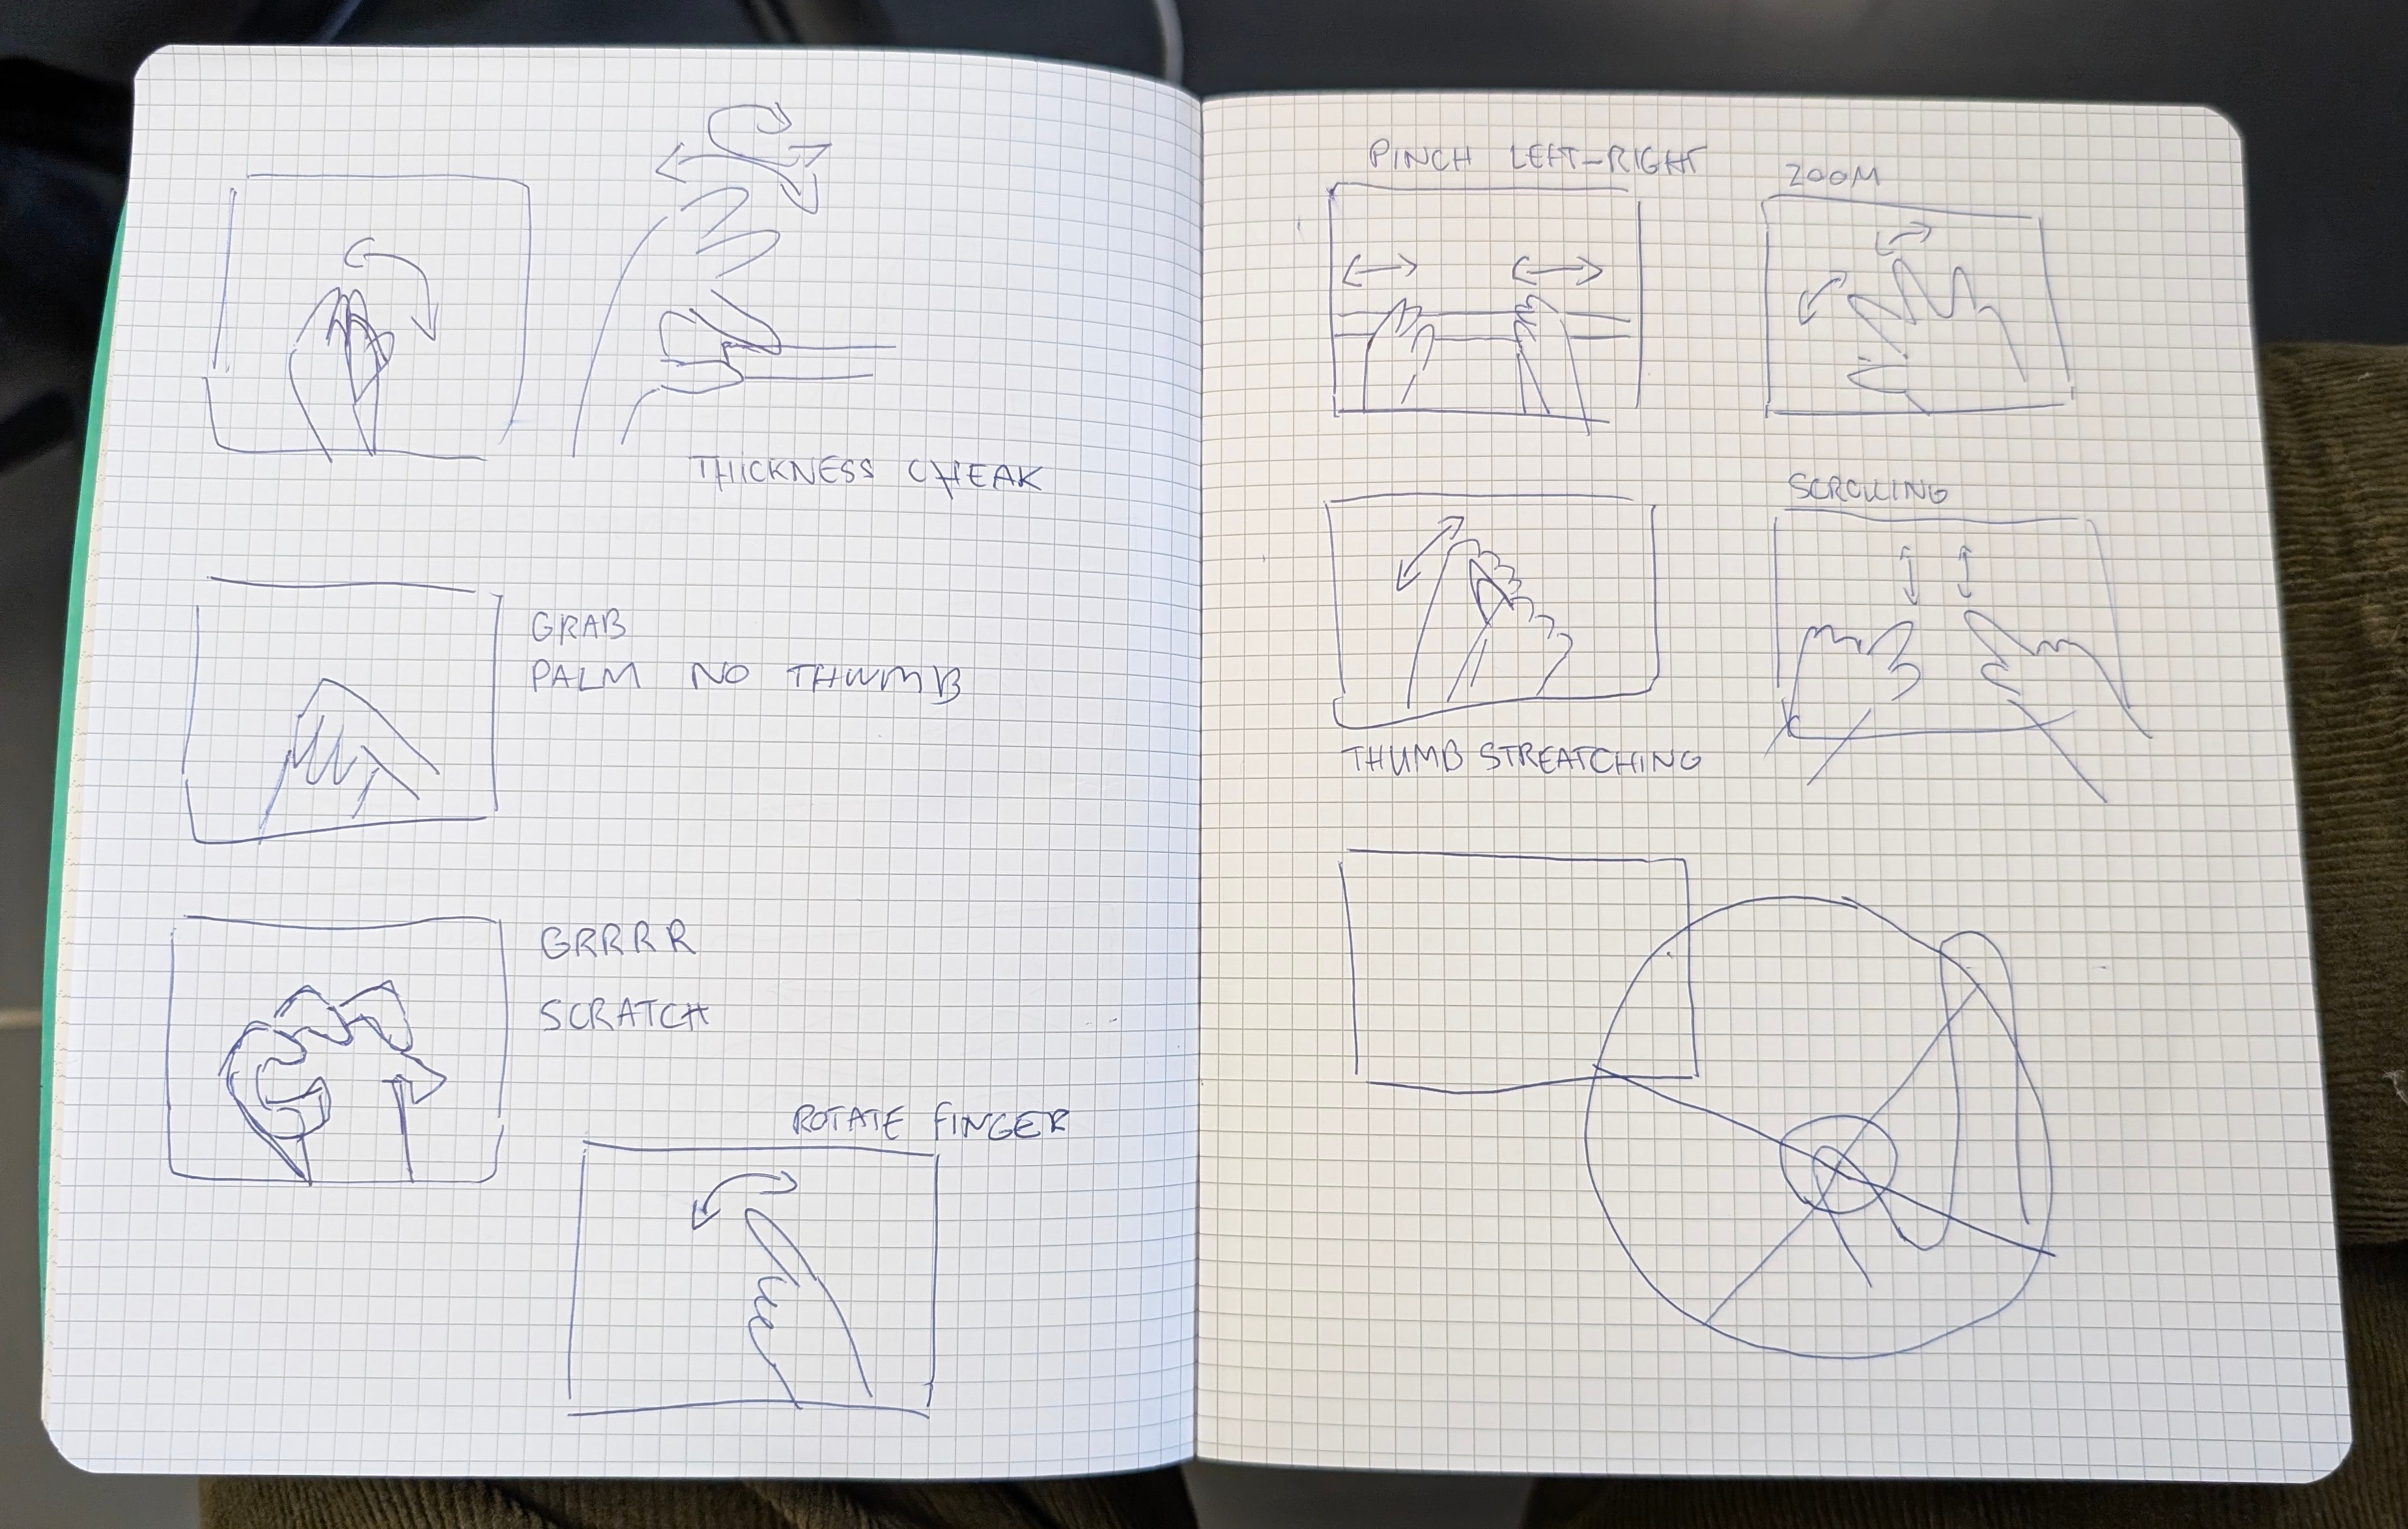 THICKNESS CHEAK
GRAB
PALM NO THUMB
GRRRR
SCRATCH
ROTATE FINGER
PINCH LEFT-RIGHT
ZOOM
THUMB STREATCHING
SCROLLING